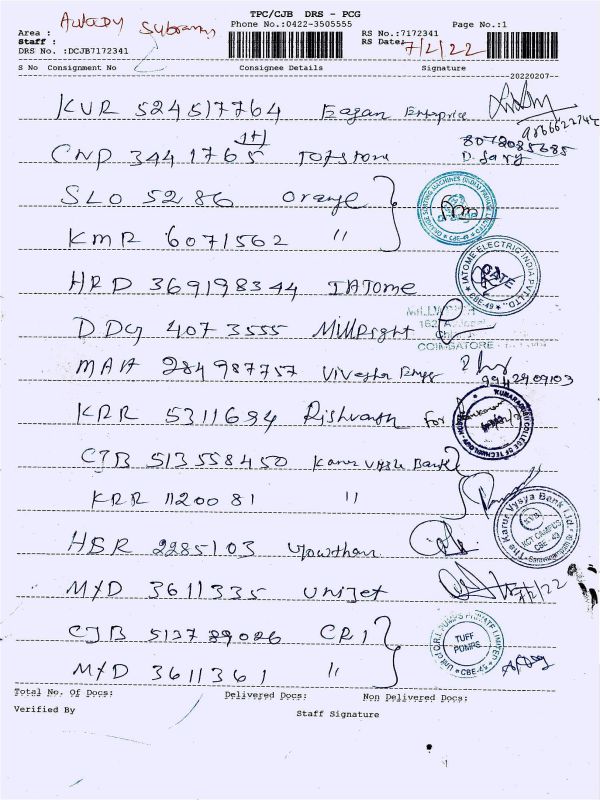 TPC/CJB DRS - PCG
Area : Phone No.:0422-3505555 Page No.:1
Staff : RS No.:7172341
DRS No. :DCJB7172341 RS Date: 7/2/22
S No Consignment No Consignee Details Signature
20220207
KVR 524517764 Eagan Enterprice
9866622742
CNP 3441765 1+1 Totstone 8072085685
SLO 5286 Orange
KMR 6071562 "
CBE-49
HRD 369198344 IATOME
IATOME ELECTRIC INDIA PVT. LTD. GATE CBE-49
DDG 4073555 Millright
COIMBATORE
MAA 284987757
9942909103
KRR 5311694 Rishvanth For
KUMARAGURU COLLEGE OF TECHNOLOGY
CJB 513558450 Karur Vysya Bank
KRR 1120081 "
The Karur Vysya Bank Ltd. KCT CAMPUS CBE - 49
HSR 2285103 Yowthan
MXD 3611335 Unijet
CJB 513789026 CRI
Unit of C.R.I. PUMPS PRIVATE LIMITED TUFF PUMPS CBE-45
MXD 3611361 "
Total No. Of Docs: Delivered Docs: Non Delivered Docs:
Verified By Staff Signature